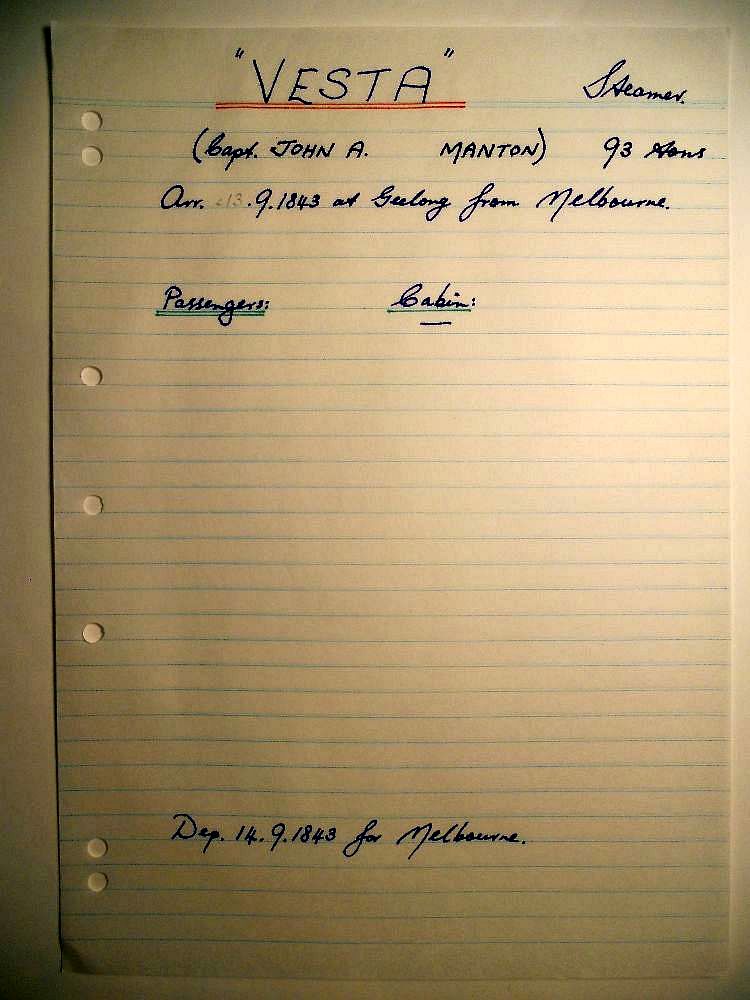 "VESTA" Steamer.
(Capt. JOHN A. MANTON) 93 tons
Arr. 13.9.1843 at Geelong from Melbourne.
Passengers: Cabin:
—
Dep. 14.9.1843 for Melbourne.